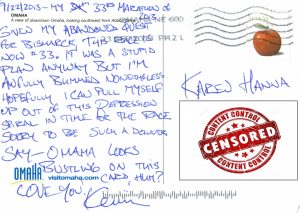 9/22/2013 - MY 33RD MARATHON OF 2013
OMAHA
A view of downtown Omaha, looking southwest from
SINCE MY ABANDONED QUEST
FOR BISMARCK, THIS
NOW #33. IT WAS A STUPID
PLAN ANYWAY BUT I'M
AWFULLY BUMMED NONETHELESS
HOPEFULLY I CAN PULL MYSELF
UP OUT OF THIS DEPRESSION
SPIRAL IN TIME FOR THE RACE
SORRY TO BE SUCH A DOWNER
SAY - OMAHA LOOKS
BUSTLING ON THIS
CARD HUH?
LOVE YOU,
OMAHA
visitomaha.com
KAREN HANNA
CONTENT CONTROL
CENSORED
CONTENT CONTROL